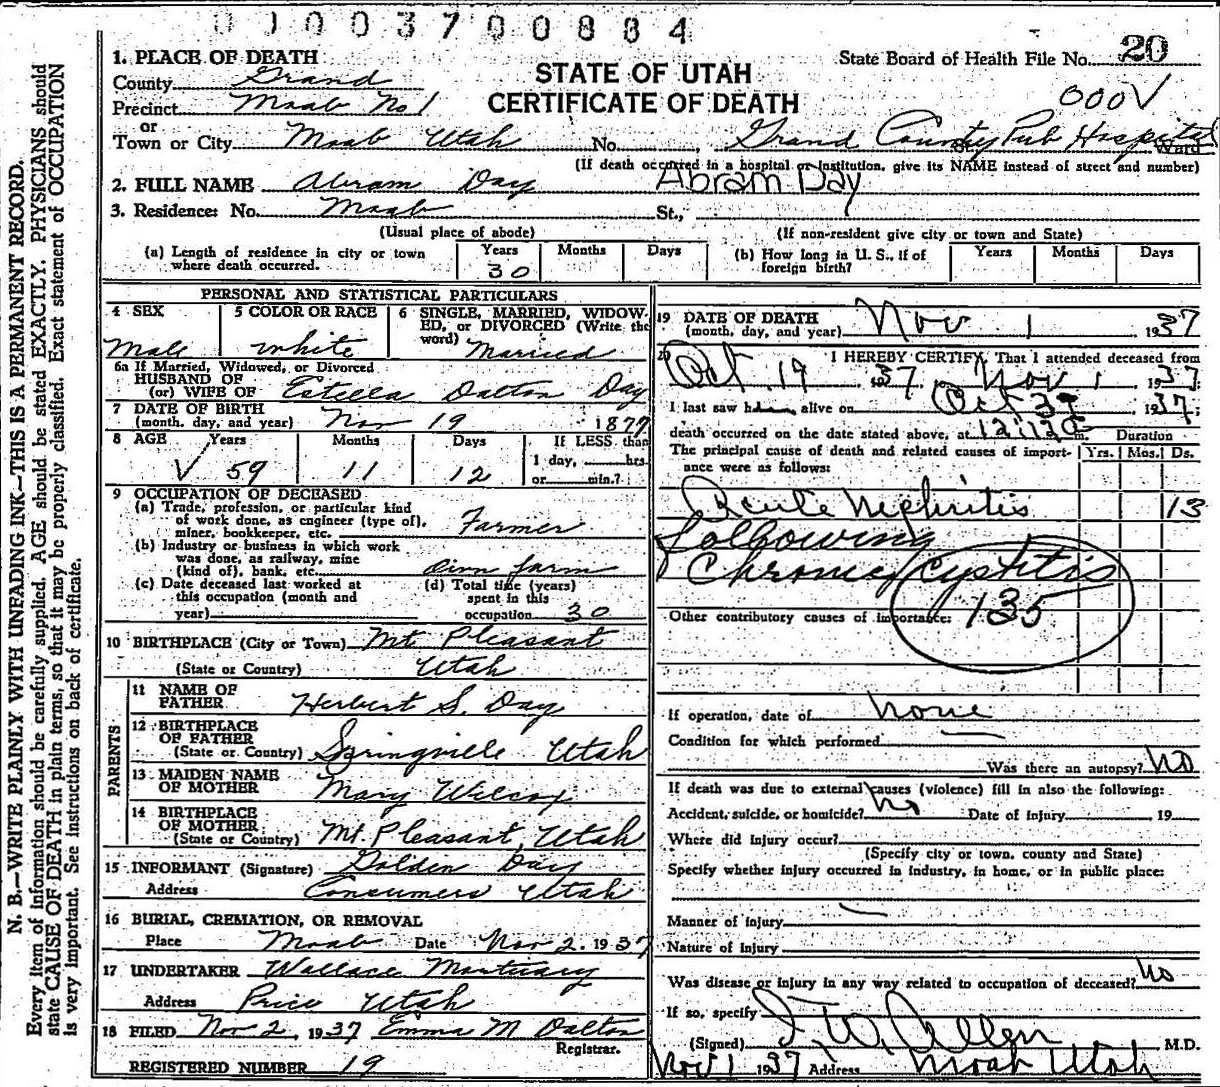 0 1 0 0 3 7 0 0 8 8 4
1. PLACE OF DEATH
State Board of Health File No. 20
County Grand
STATE OF UTAH
Precinct Moab No 1
CERTIFICATE OF DEATH
000V
or
Town or City Moab Utah No. Grand County Pub Hospital Ward
(If death occurred in a hospital or institution, give its NAME instead of street and number)
2. FULL NAME Abram Day Abram Day
3. Residence: No. Moab St.,
(Usual place of abode) (If non-resident give city or town and State)
(a) Length of residence in city or town where death occurred. Years 30 Months Days
(b) How long in U. S., if of foreign birth? Years Months Days
PERSONAL AND STATISTICAL PARTICULARS
4 SEX Male
5 COLOR OR RACE white
6 SINGLE, MARRIED, WIDOWED, or DIVORCED (Write the word) Married
6a If Married, Widowed, or Divorced
HUSBAND OF
(or) WIFE OF Estella Dalton Day
7 DATE OF BIRTH
(month, day, and year) Nov 19 1877
8 AGE Years Months Days If LESS than
V 59 11 12 1 day, hrs.
or min.?
9 OCCUPATION OF DECEASED
(a) Trade, profession, or particular kind
of work done, as engineer (type of),
miner, bookkeeper, etc. Farmer
(b) Industry or business in which work
was done, as railway, mine
(kind of), bank, etc. own farm
(c) Date deceased last worked at
this occupation (month and
year)
(d) Total time (years)
spent in this
occupation 30
10 BIRTHPLACE (City or Town) Mt Pleasant
(State or Country) Utah
PARENTS
11 NAME OF
FATHER Herbert S. Day
12 BIRTHPLACE
OF FATHER
(State or Country) Springville Utah
13 MAIDEN NAME
OF MOTHER Mary Wilcox
14 BIRTHPLACE
OF MOTHER
(State or Country) Mt. Pleasant, Utah
15 INFORMANT (Signature) Golden Day
Address Consumers Utah
16 BURIAL, CREMATION, OR REMOVAL
Place Moab Date Nov 2. 1937
17 UNDERTAKER Wallace Mortuary
Address Price Utah
18 FILED Nov 2, 1937 Emma M Dalton
Registrar.
REGISTERED NUMBER 19
19 DATE OF DEATH
(month, day, and year) Nov 1 1937
20 I HEREBY CERTIFY, That I attended deceased from
Oct 19 37 Nov 1 1937
I last saw h alive on Oct 1937
death occurred on the date stated above, at 12:12a m. Duration
The principal cause of death and related causes of importance were as follows: Yrs. Mos. Ds.
Acute Nephritis 13
following
Chronic cystitis
135
Other contributory causes of importance:
If operation, date of none
Condition for which performed
Was there an autopsy? No
If death was due to external causes (violence) fill in also the following:
Accident, suicide, or homicide? no Date of Injury 19
Where did injury occur?
(Specify city or town, county and State)
Specify whether injury occurred in industry, in home, or in public place:
Manner of injury
Nature of Injury
Was disease or injury in any way related to occupation of deceased? No
If so, specify
(Signed) I. W. Allen M.D.
Nov 1 1937 Address Moab Utah
N. B.—WRITE PLAINLY WITH UNFADING INK—THIS IS A PERMANENT RECORD.
Every item of Information should be carefully supplied. AGE should be stated EXACTLY. PHYSICIANS should
state CAUSE OF DEATH in plain terms, so that it may be properly classified. Exact statement of OCCUPATION
is very important. See instructions on back of certificate.